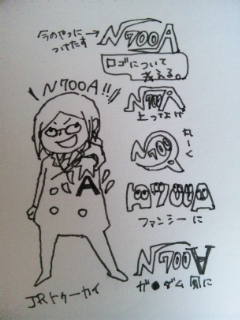 今のやつに
つけたす
N700A
ロゴについて
考える。
N700A!!
N700A
上ってよげ
N700
丸〜く
A
N700A
ファンシーに
N700A
ガ●ダム風に
JRトゥーカイ